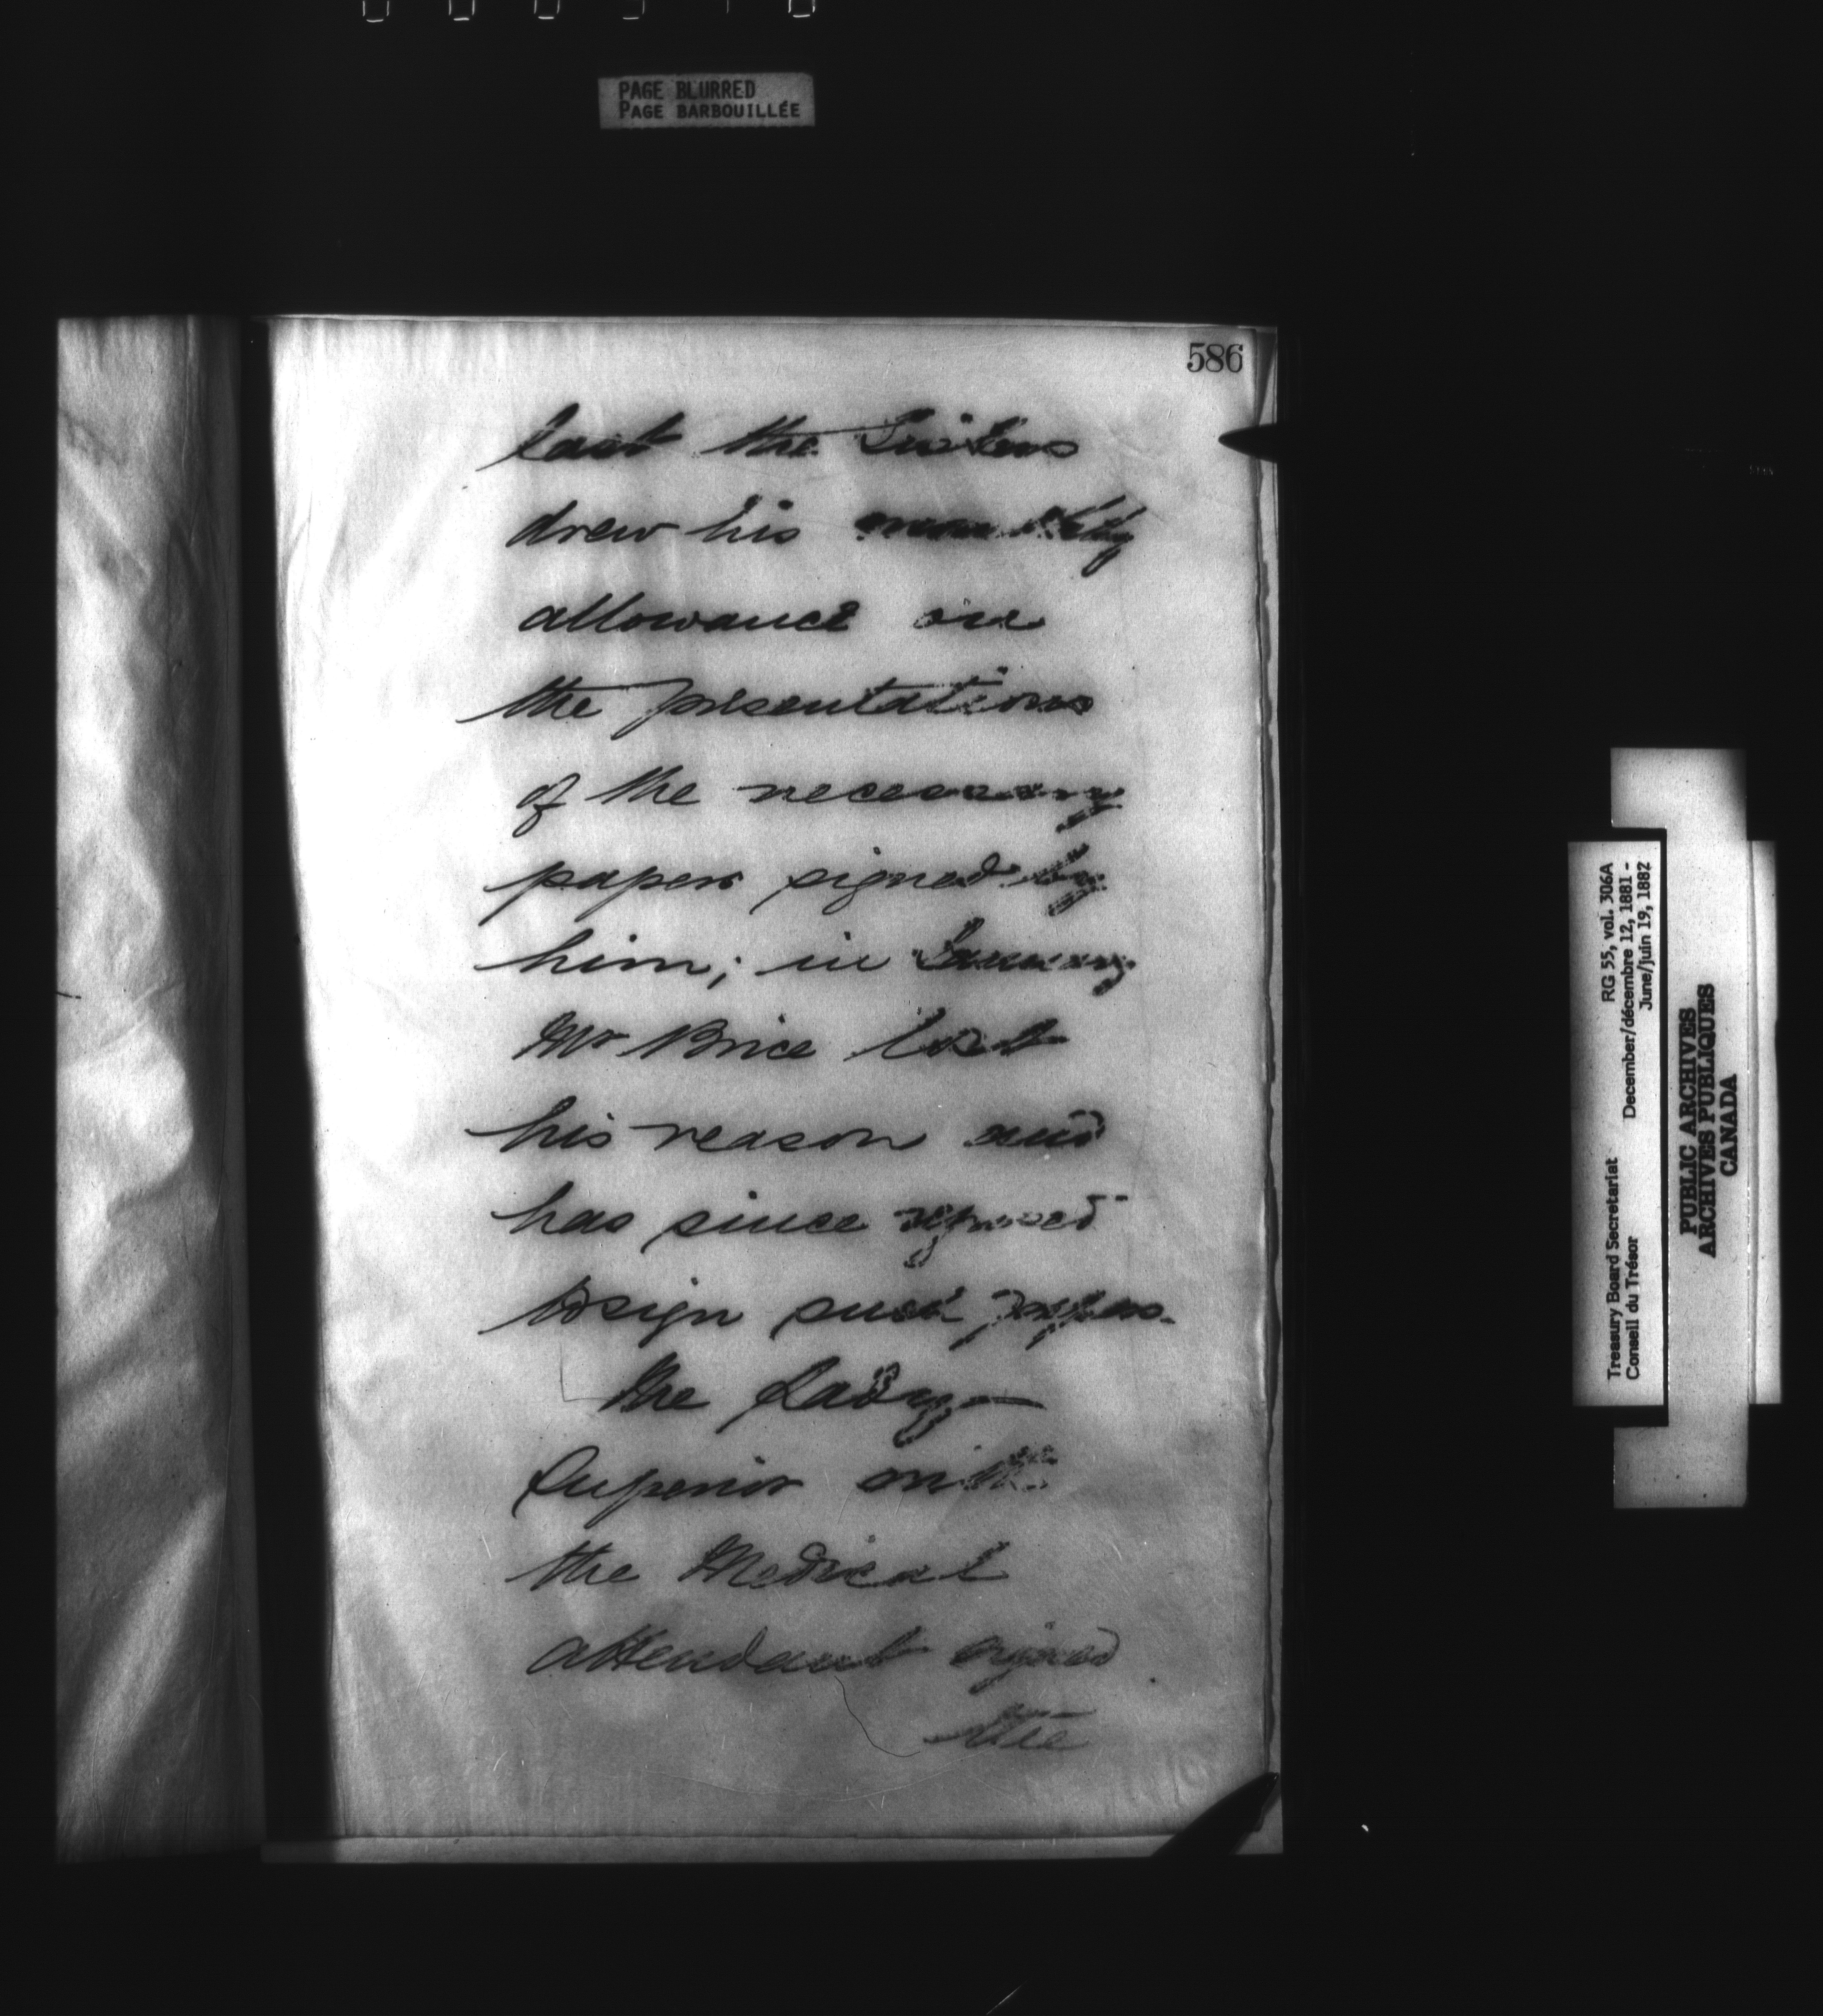 PAGE BLURRED
PAGE BARBOUILLÉE
586
last the Sisters
drew his monthly
allowance on
the presentations
of the necessary
papers signed by
him; in January
Mr Brice lost
his reason and
has since refused
to sign such papers.
The Lady
Superior and
the Medical
attendant signed
the
Treasury Board Secretariat RG 55, vol. 306A
Conseil du Trésor December/décembre 12, 1881 -
June/juin 19, 1882
PUBLIC ARCHIVES
ARCHIVES PUBLIQUES
CANADA